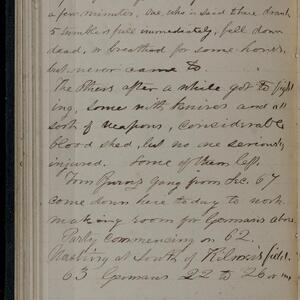 a few minutes, one, who is said to have drank
5 tumblers full immediately, fell down
dead, or breathed for some hours,
but never came to.
The others after a while got to fight
ing, some with knives and all
sorts of weapons, considerable
blood shed, but no one seriously
injured. Some of them left.
Tom Burns gang from Sec. 67
come down here today to work
making room for Germans above
Party commencing on 62.
Washing at South of Kilmer's field.
63 Germans 22 to 26 or